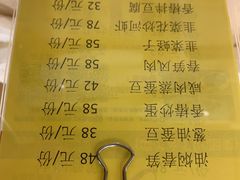 油焖春笋 48元/份
葱油蚕豆 38元/份
香椿炒蛋 58元/份
咸肉蒸蚕豆 42元/份
春笋风肉 58元/份
韭菜蛏子 58元/份
韭菜花炒河虾 78元/份
香椿拌豆腐 32元/份